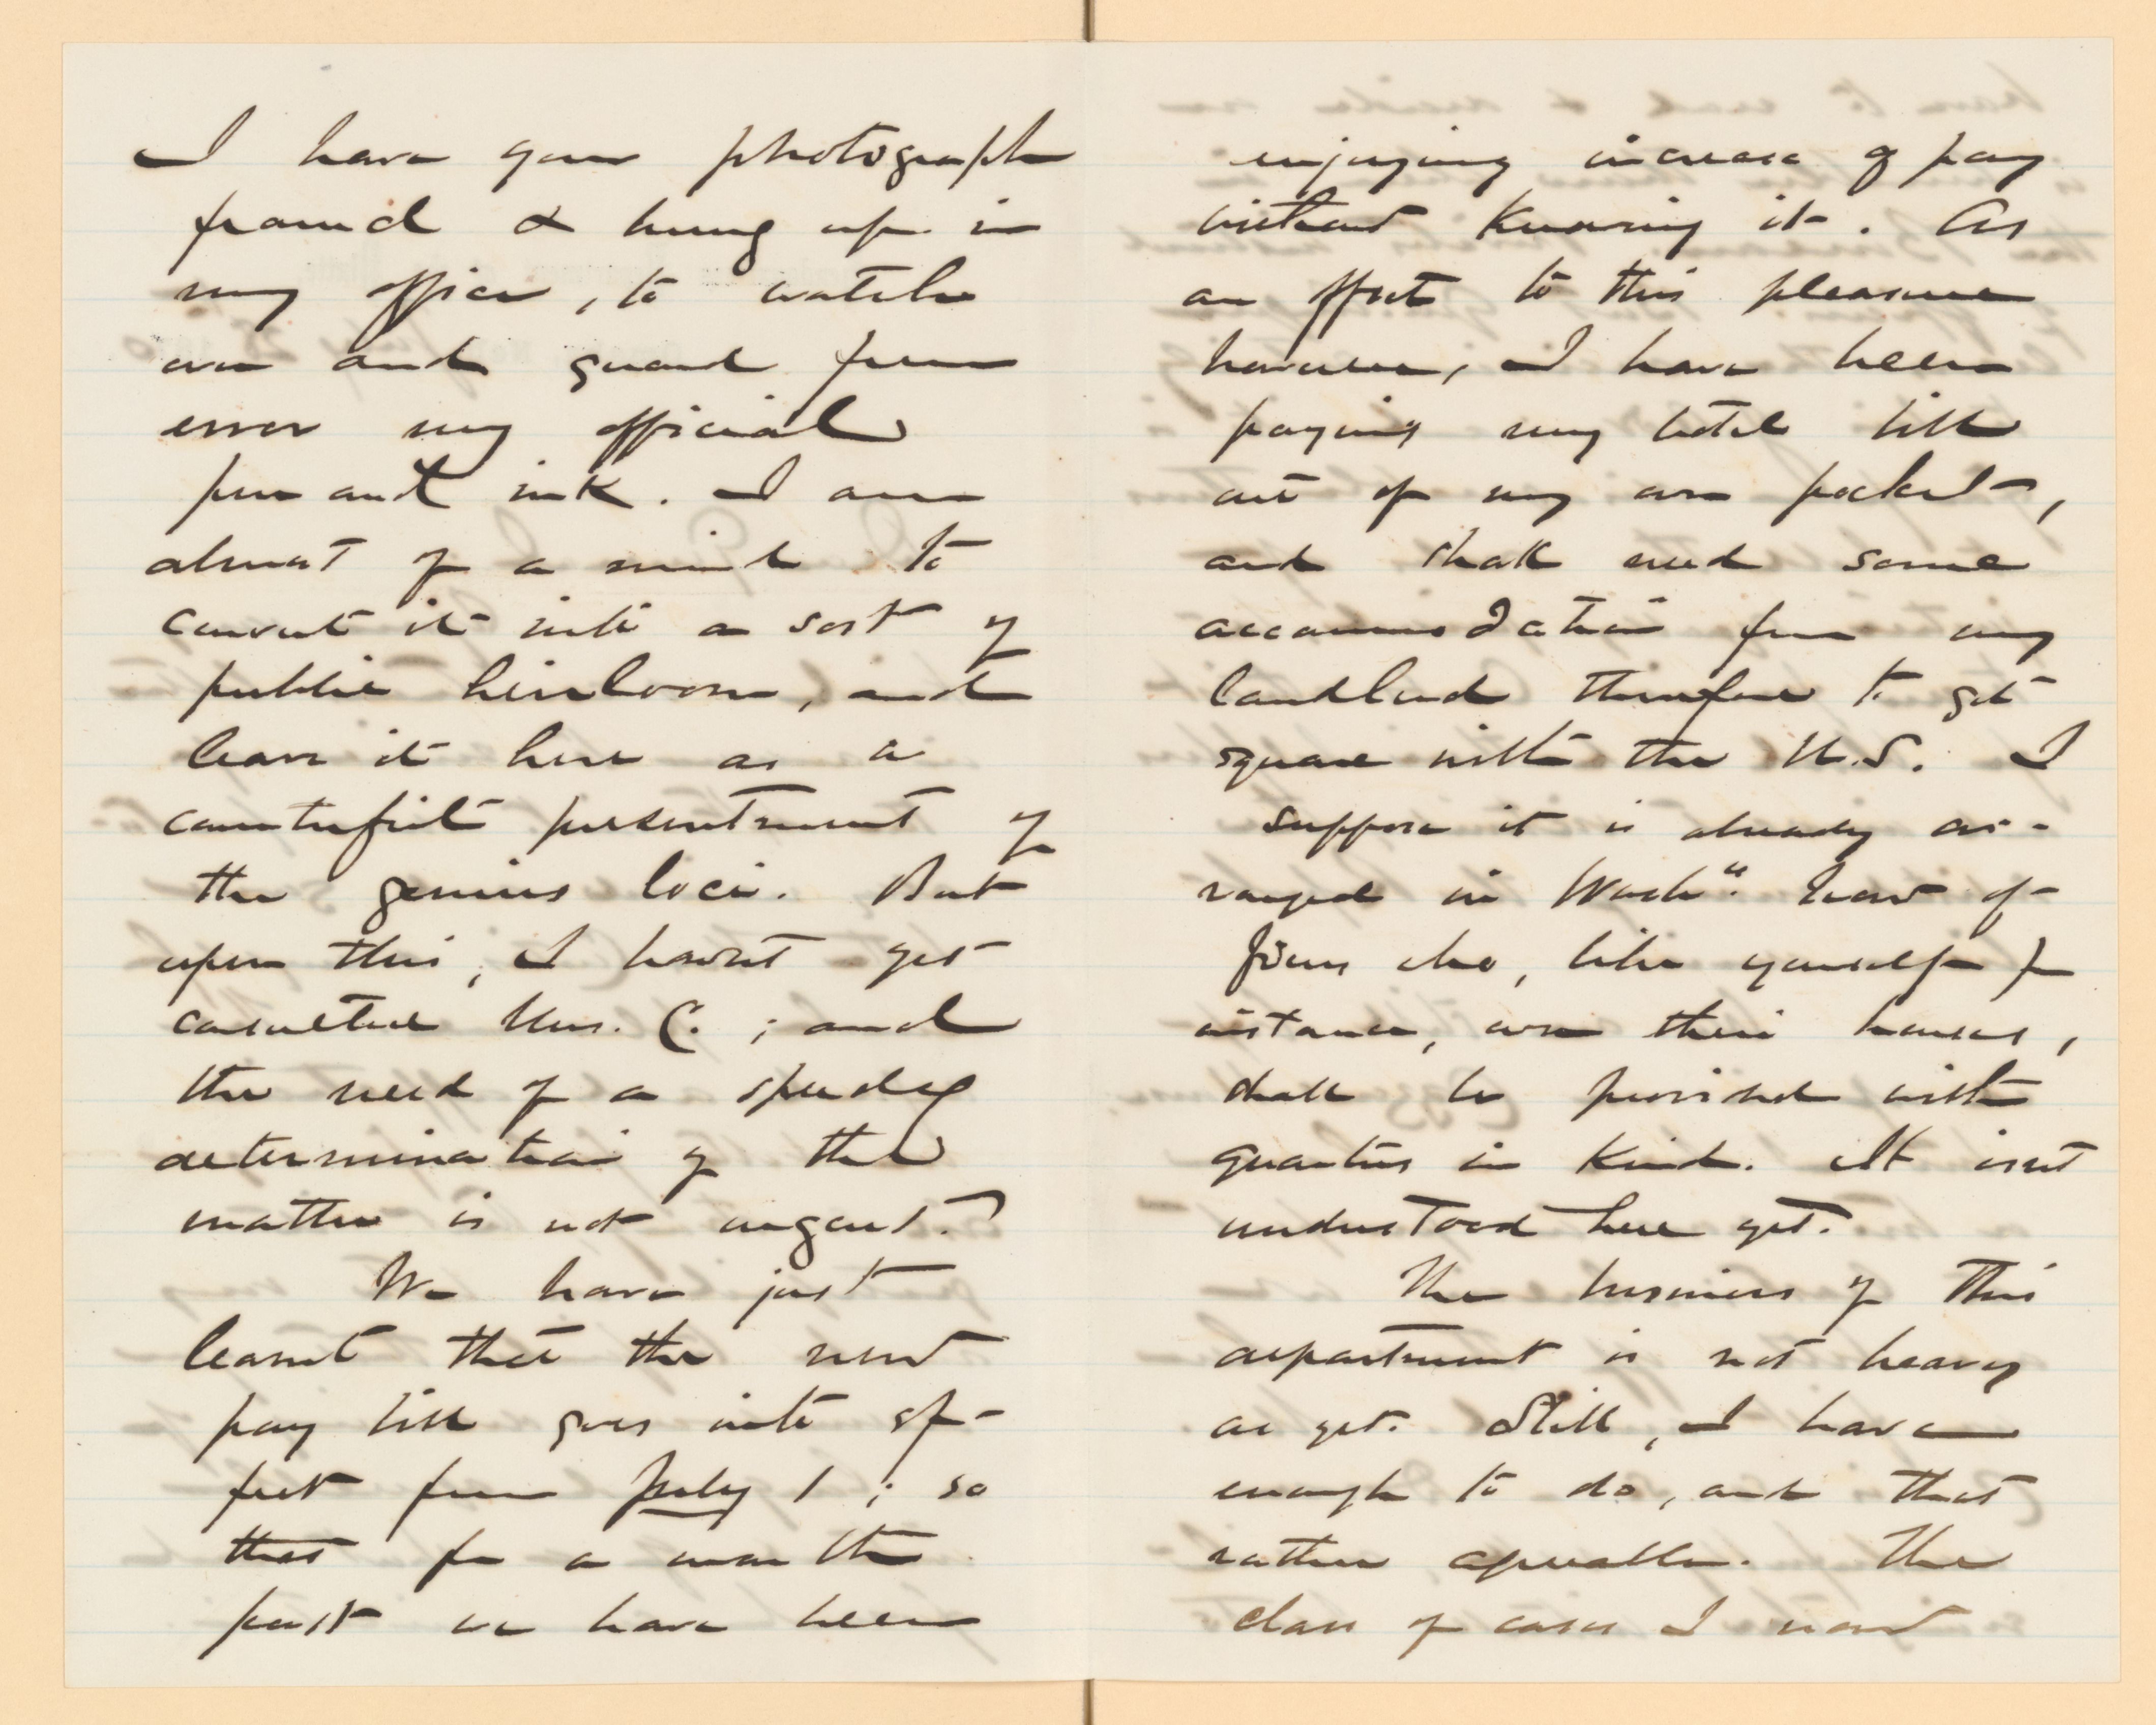 I have your photograph
framed & hung up in
my office, to watch
over and guard from
error my official
pen and ink. I am
almost of a mind to
convert it into a sort of
public heirloom, and
leave it here as a
counterfeit presentment of
the genius loci. But
upon this, I havnt yet
consulted Mrs. C. ; and
the need of a speedy
determination of the
matter is not urgent.
We have just
learnt that the new
pay bill goes into ef-
fect from July 1 ; so
that for a month
past we have been
enjoying increase of pay
without knowing it. As
an offset to this pleasure
however, I have been
paying my hotel bill
out of my own pocket,
and shall need some
accommodation from my
landlord therefore to get
square with the U.S. I
suppose it is already ar-
ranged in Wash". how of-
ficers who, like yourself for
instance, own their houses,
shall be provided with
quarters in kind. It isnt
understood here yet.
The business of this
department is not heavy
as yet. Still, I have
enough to do, and that
rather agreeable. The
class of cases I now